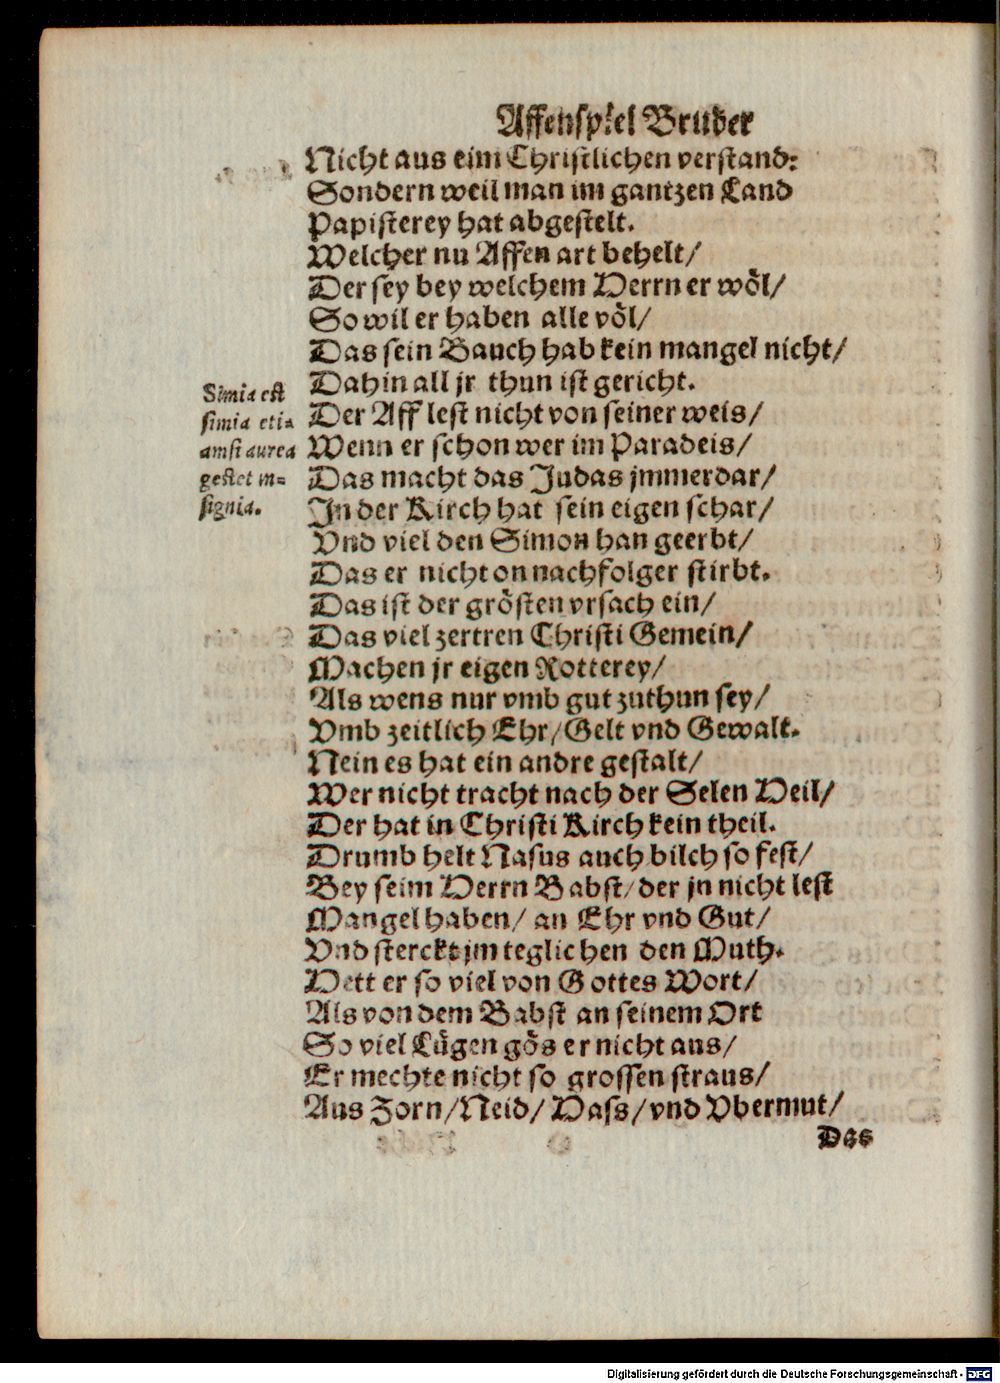 Affenspiel Bruder
Nicht aus eim Christlichen verstand:
Sondern weil man im gantzen Land
Papisterey hat abgestelt.
Welcher nu Affen art behelt/
Der sey bey welchem Herrn er wöl/
So wil er haben alle völ/
Das sein Bauch hab kein mangel nicht/
Dahin all jr thun ist gericht.
Der Aff lest nicht von seiner weis/
Wenn er schon wer im Paradeis/
Das macht das Judas jmmerdar/
In der Kirch hat sein eigen schar/
Vnd viel den Simon han geerbt/
Das er nicht on nachfolger stirbt.
Das ist der grösten vrsach ein/
Das viel zertren Christi Gemein/
Machen jr eigen Rotterey/
Als wens nur vmb gut zuthun sey/
Vmb zeitlich Ehr/Gelt vnd Gewalt.
Nein es hat ein andre gestalt/
Wer nicht tracht nach der Selen Heil/
Der hat in Christi Kirch kein theil.
Drumb helt Nasus auch bilch so fest/
Bey seim Herrn Babst/der jn nicht lest
Mangel haben/ an Ehr vnd Gut/
Vnd sterckt jm teglichen den Muth.
Hett er so viel von Gottes Wort/
Als von dem Babst an seinem Ort
So viel Lügen gös er nicht aus/
Er mechte nicht so grossen straus/
Aus Zorn/Neid/Hass/vnd Vbermut/
Das
Simia est
simia eti-
amsi aurea
gestet in-
signia.
Digitalisierung gefördert durch die Deutsche Forschungsgemeinschaft - DFG